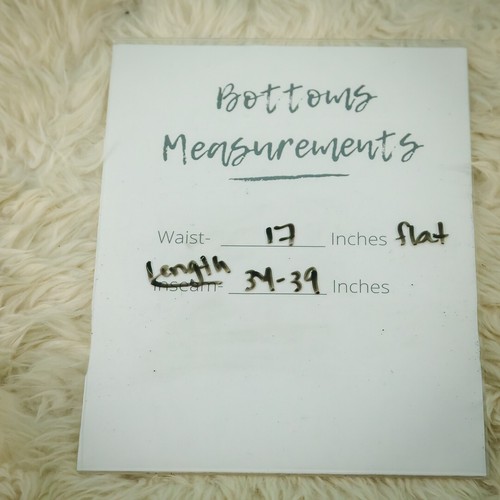 Bottoms
Measurements
Waist- 17 Inches flat
Length
Inseam- 34-39 Inches